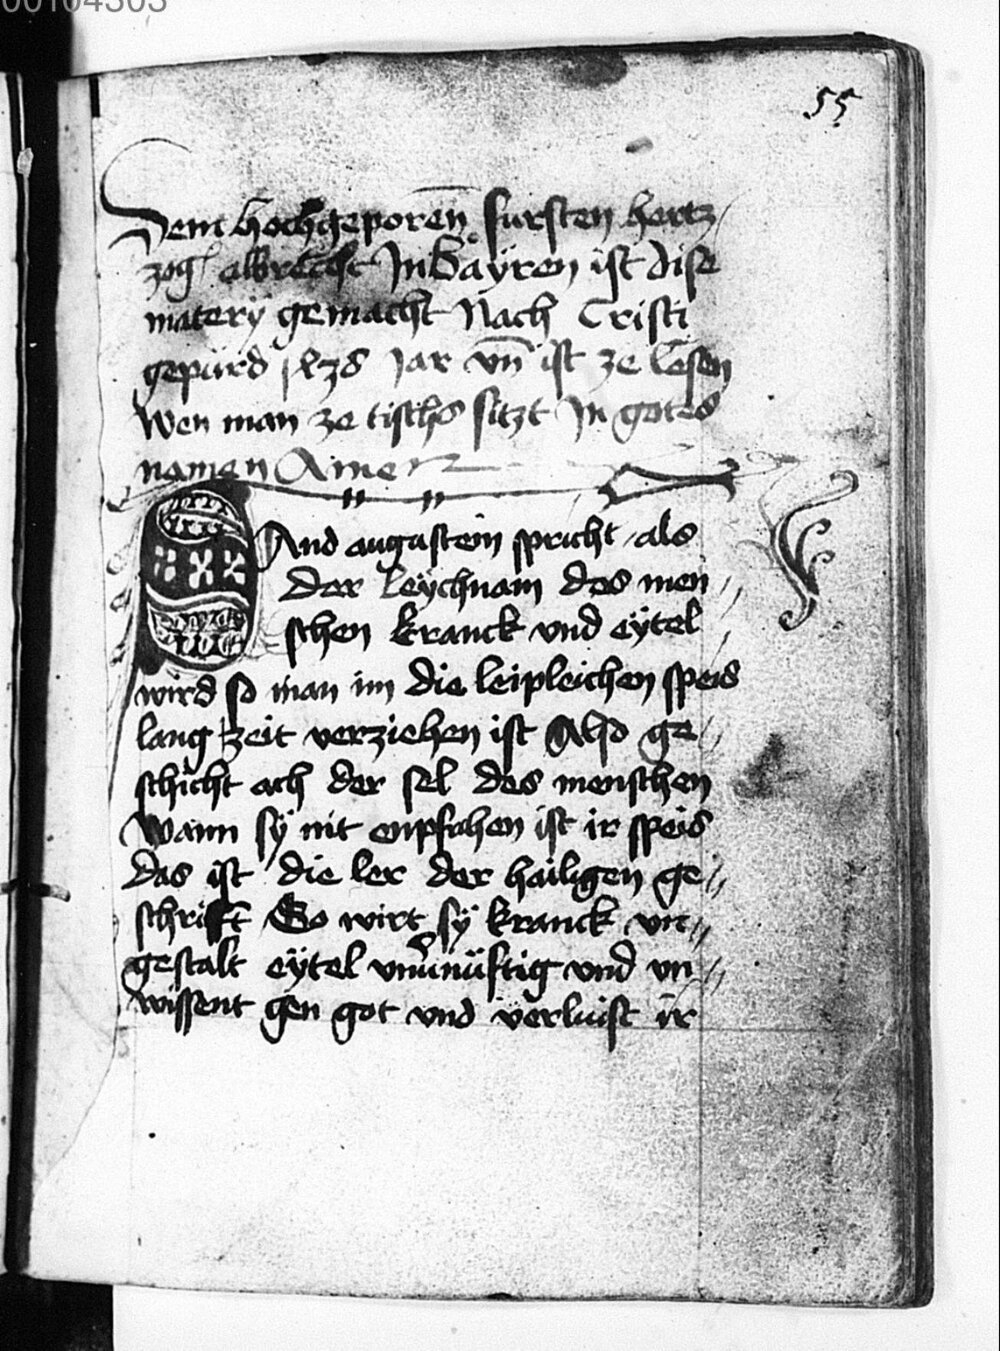 00104303
55
Dem hochgeporen̄ fursten hertz
zog albrecht In Bayren ist dise
matery gemacht Nach Cristi
gepürd Jar vn̄ ist ze lesen
Wen man ze tischs sitzt In gotes
namen Amen
Sand augustein spricht als
der leychnam des men
schen kranck vnd eytel
wird so man im die leipleichen speis
lang zeit verziehen ist Also ge
schicht ach der sel des menschen
Wann sy nit enpfahen ist ir speis
das ist die ler der hailigen ge
schrift So wirt sy kranck vn
gestalt eytel vnuernüftig vnd vn
wissent gen got vnd verluist ir